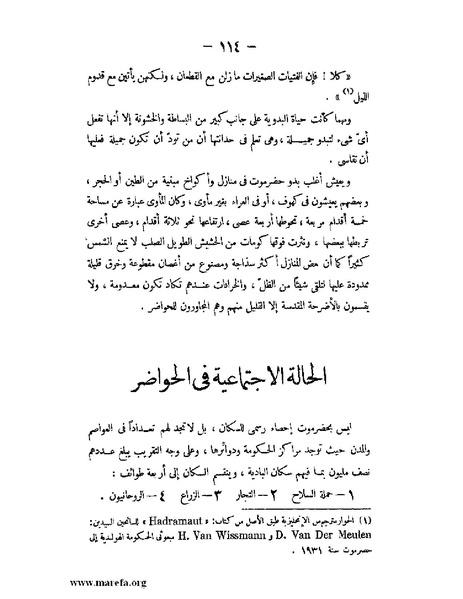 — ١١٤ —
« كلا ! فإن الفتيات الصغيرات ما زلن مع القطعان ، ولكنهن يأتين مع قدوم
الليل (١) » .
ومهما كانت حياة البدوية على جانب كبير من البساطة والخشونة إلا أنها تفعل
أى شىء لتبدو جميـــلة ، وهى تعلم فى حداثتها أن من تودّ أن تكون جميلة فعليها
أن تقاسى .
ويعيش أغلب بدو حضرموت فى منازل وأكواخ مبنية من الطين أو الحجر ،
وبعضهم يعيشون فى كهوف ، أو فى العراء بغير مأوى ، وكان المأوى عبارة عن مساحة
خمسة أقدام مربعة ، تحوطها أربعة عصى ، ارتفاعها نحو ثلاثة أقدام ، وعصى أخرى
تربطها ببعضها ، ونثرت فوقها كومات من الحشيش الطويل الصلب لا يمنع الشمس
كثيراً كما أن بعض المنازل أكثر سذاجة ومصنوع من أغصان مقطوعة وخرق قليلة
ممدودة عليها لتلقى شيئاً من الظلّ ، والخرافات عندهم تكاد تكون معدومة ، ولا
يقسمون بالأضرحة المقدسة إلا القليل منهم وهم المجاورون للحواضر .
الحالة الاجتماعية فى الحواضر
ليس بحضرموت إحصاء رسمى للسكان ، بل لا تجد لهم تعـداداً فى العواصم
والمدن حيث توجد مراكز الحكومة ودوائرها ، وعلى وجه التقريب يبلغ عددهم
نصف مليون بما فيهم سكان البادية ، وينقسم السكان إلى أربعة طوائف :
١ – حملة السلاح ٢ – التجار ٣ – الزراع ٤ – الروحانيون .
(١) الحوار مترجم من الإنجليزية طبق الأصل من كتاب : « Hadramaut » للسائحين السيدين :
D. Van Der Meulen و H. Van Wissmann مبعوثى الحكومة الهولندية إلى
حضرموت سنة ١٩٣١ .
www.marefa.org